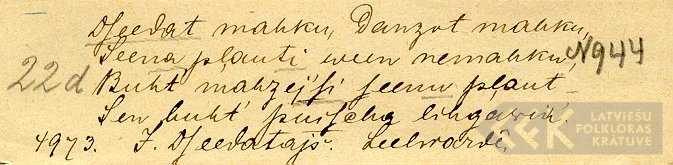 Dſeedat mahku, Danzot mahku,
Seena pļauti ween nemahku,
N944
22d Buht mahzejſi ſeenu pļaut –
Sen buht' puiſcha lihgawiņ'.
4973. J. Dſeedatajs. Leelwardē.
LATVIEŠU
FOLKLORAS
KRĀTUVE